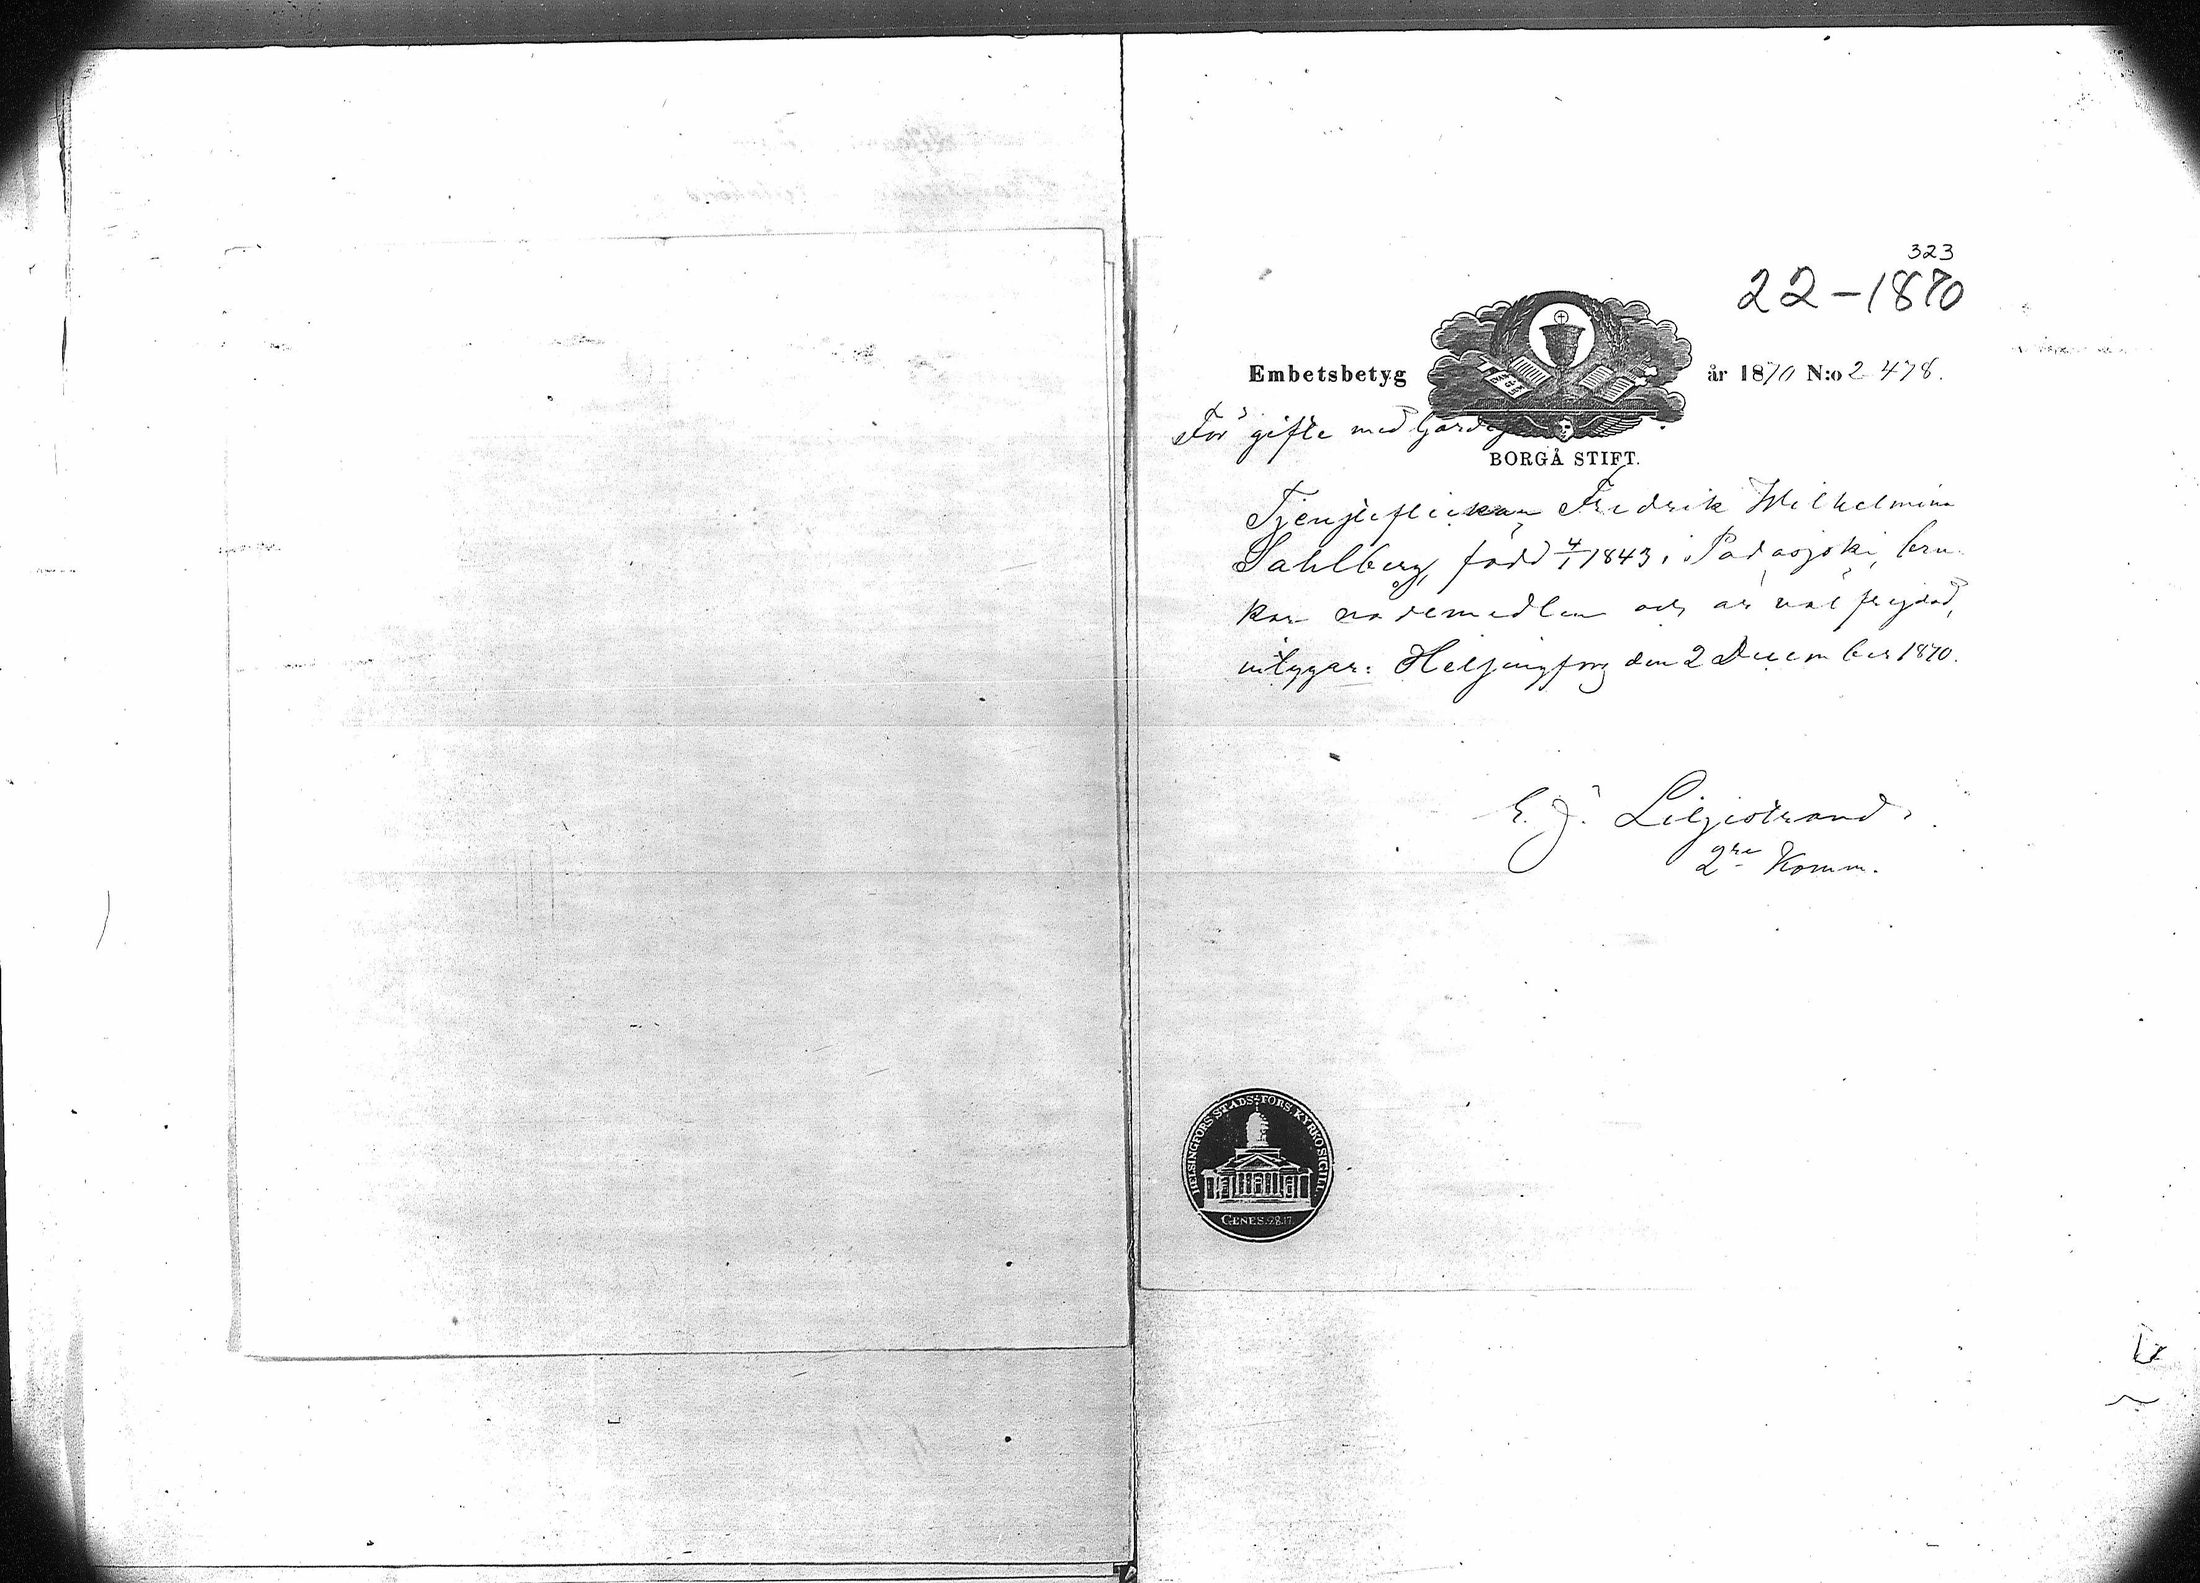 323
22-1870
Embetsbetyg
år 1870 N:o 2478.
För gifte med
BORGÅ STIFT.
Tjensteflickan Fredrik Wilhelmina
Sahlberg, född 4/1 1843 i Padasjoki, bru-
kar nademedlen och är väl frejdad,
intygar: Helsingfors den 2 December 1870.
E. J. Liljestrand
2re Komm.
HELSINGFORS STADS-FÖRS. KYRKO SIGILL.
GENES. 28.17.